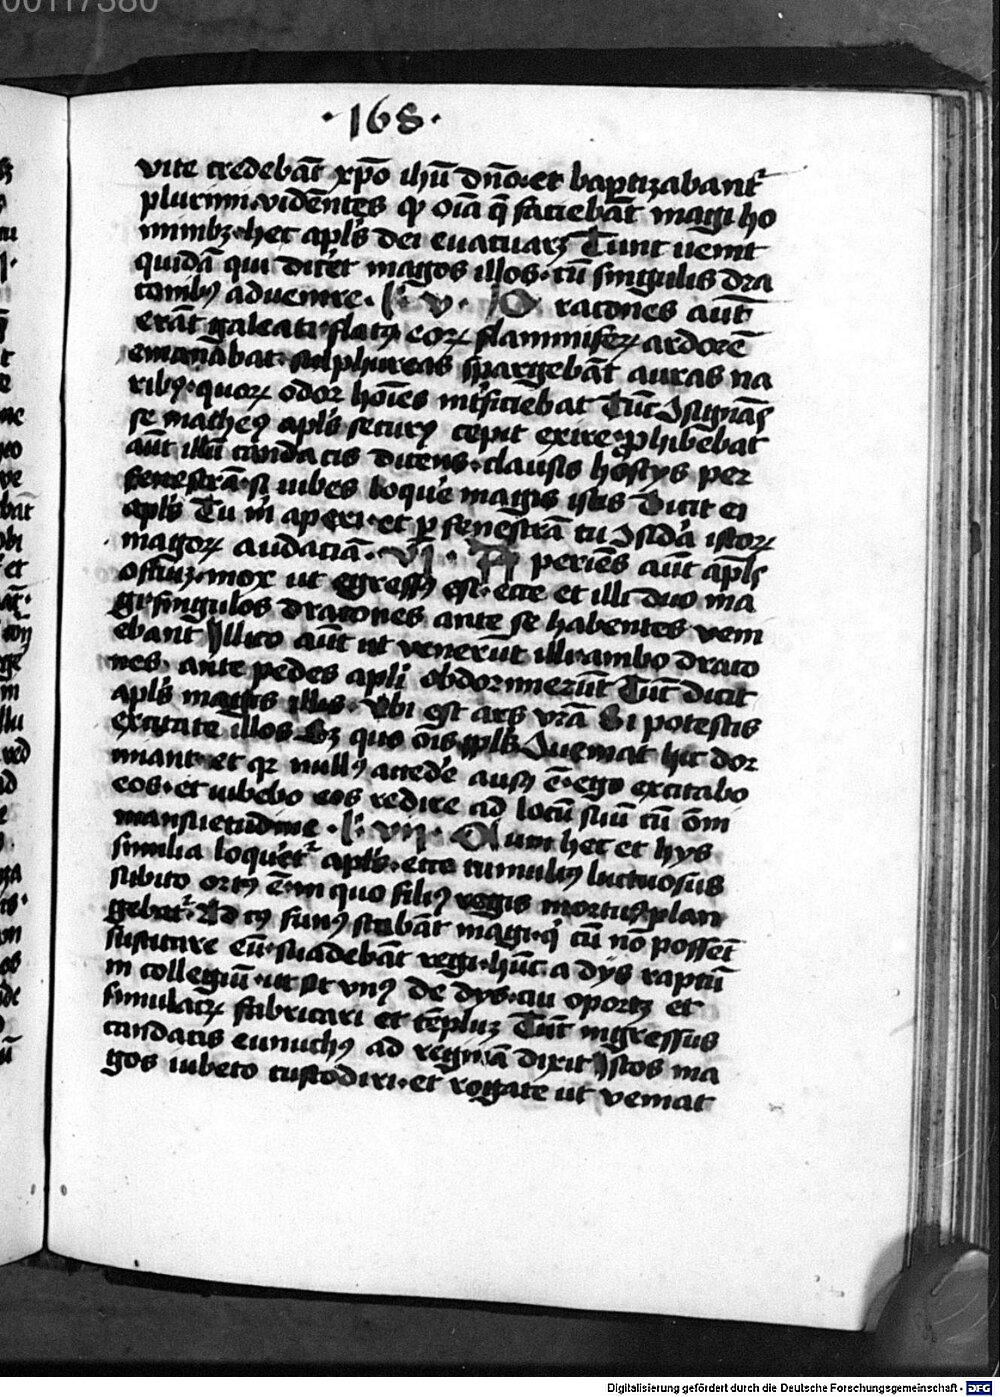 00117380
·168·
vite credebāt xp̄o ihū dño·et baptizabant᷑
plurimi·videntes qꝫ oīa q̄ faciebāt magi ho
minibꝫ·hec apl̄s dei euacuarꝫ Tunc uenit
quidā qui dicēt magos illos·cū singulis dra
conibꝯ aduenire· ·v· D racones aūt
erāt galeati·flatꝯ eoꝝ flammiferꝫ ardorē
emanabat·sulphureas spargebāt auras na
ribꝯ·quoꝝ odor hoīes int̄ficiebat Tūc ɔsignās
se matheꝯ apl̄s securꝯ cepit exire·ꝓhibebat
aūt illū candacis dicens·clausis hostijs per
fenestrā·si iubes loque magis istis Dicit ei
apl̄s Tu m̄ aperi·et ꝑ fenestrā tu ɔsidā istoꝝ
magoꝝ audaciā· ·vj· A periēs aūt apl̄s
ostiuꝫ·mox ut egressꝯ est·ecce et illi duo ma
gi·singulos dracones ante se habentes veni
ebant Illico aūt ut venerūt illi·ambo draco
nes· ante pedes apl̄i obdormierūt Tūc dicit
apl̄s magis illis· Vbi est ars vr̄a Si potestis
excitate illos Sꝫ quo ōīs ppl̄s ɔueniat hic dor
miant·et qꝛ nullꝯ accedē ausꝯ ē·ego excitabo
eos·et iubebo eos redire ad locū suū cū om̄i
mansuetudine · ·vij· C um hec et hijs
similia loquet᷑ apl̄s·ecce tumultꝯ luctuosus
subito ortꝯ ē·in quo filiꝯ regis mortuꝯ·plan
gebat᷑·Ad cꝯ funꝯ stabāt magi·q̇ cū nō possēt
suscitare eū·suadebāt regi·hūc a dijs raptū
in collegiū·ut sit vnꝯ de dijs·cui oportꝫ et
simulacꝝ fabricari et tēpluꝫ Tūc ingressus
candacis eunuchꝯ ad reginā dixit Istos ma
gos iubeto custodiri·et rogate ut veniat
Digitalisierung gefördert durch die Deutsche Forschungsgemeinschaft - DFG